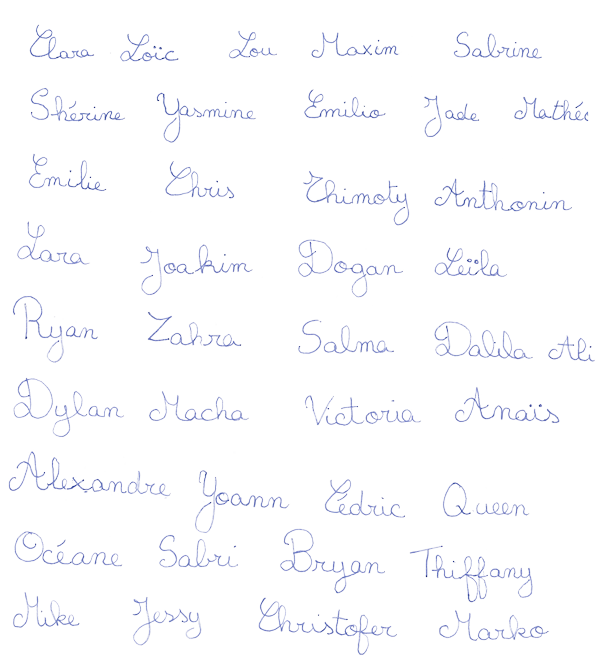 Clara Loïc Lou Maxim Sabrine
Shérine Yasmine Emilio Jade Mathéo
Emilie Chris Thimoty Anthonin
Lara Joakim Dogan Leïla
Ryan Zahra Salma Dalila Ali
Dylan Macha Victoria Anaïs
Alexandre Yoann Cédric Queen
Océane Sabri Bryan Thiffany
Mike Jessy Christofer Marko